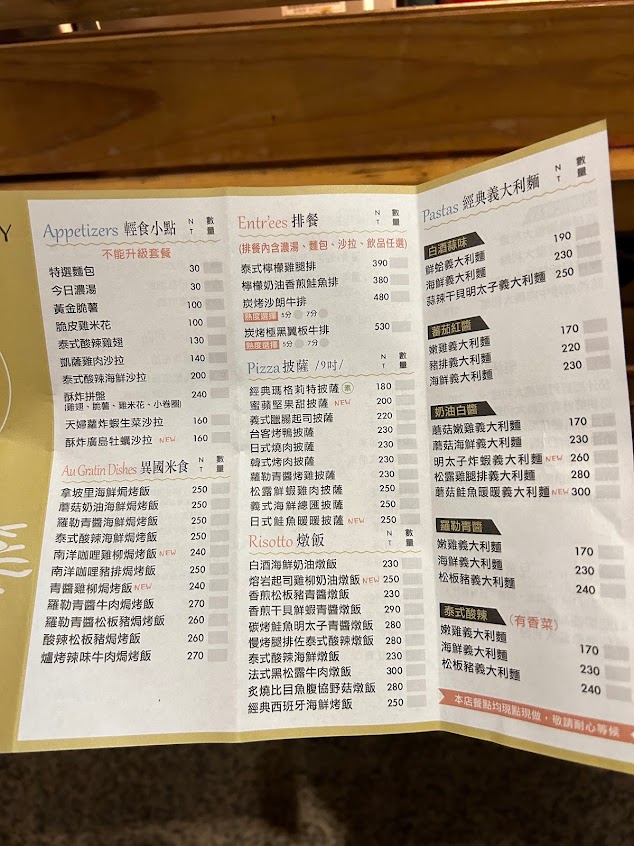 Y
Appetizers 輕食小點 NT 數量
不能升級套餐
特選麵包 30
今日濃湯 30
黃金脆薯 100
脆皮雞米花 100
泰式酸辣雞翅 130
凱薩雞肉沙拉 140
泰式酸辣海鮮沙拉 200
酥炸拼盤 240
(雞翅、脆薯、雞米花、小卷圈)
天婦蘿炸蝦生菜沙拉 160
酥炸廣島牡蠣沙拉 NEW 160
Au Gratin Dishes 異國米食 NT 數量
拿坡里海鮮焗烤飯 250
蘑菇奶油海鮮焗烤飯 250
羅勒青醬海鮮焗烤飯 250
泰式酸辣海鮮焗烤飯 250
南洋咖哩雞柳焗烤飯 NEW 240
南洋咖哩豬排焗烤飯 250
青醬雞柳焗烤飯 NEW 240
羅勒青醬牛肉焗烤飯 270
羅勒青醬松板豬焗烤飯 260
酸辣松板豬焗烤飯 260
爐烤辣味牛肉焗烤飯 270
Entr'ees 排餐 NT 數量
(排餐內含濃湯、麵包、沙拉、飲品任選)
泰式檸檬雞腿排 390
檸檬奶油香煎鮭魚排 380
炭烤沙朗牛排 480
熟度選擇 5分 7分
炭烤極黑翼板牛排 530
熟度選擇 5分 7分
Pizza 披薩 /9吋/ NT 數量
經典瑪格莉特披薩 素 180
蜜蘋堅果甜披薩 NEW 200
義式臘腸起司披薩 220
台客烤鴨披薩 230
日式燒肉披薩 230
韓式烤肉披薩 230
羅勒青醬烤雞披薩 230
松露鮮蝦雞肉披薩 250
義式海鮮總匯披薩 250
日式鮭魚暖暖披薩 NEW 250
Risotto 燉飯 NT 數量
白酒海鮮奶油燉飯 230
熔岩起司雞柳奶油燉飯 NEW 250
香煎松板豬青醬燉飯 230
香煎干貝鮮蝦青醬燉飯 290
碳烤鮭魚明太子青醬燉飯 280
慢烤腿排佐泰式酸辣燉飯 280
泰式酸辣海鮮燉飯 230
法式黑松露牛肉燉飯 300
炙燒比目魚腹協野菇燉飯 280
經典西班牙海鮮烤飯 250
Pastas 經典義大利麵 NT 數量
白酒蒜味
鮮蛤義大利麵 190
海鮮義大利麵 230
蒜辣干貝明太子義大利麵 250
蕃茄紅醬
嫩雞義大利麵 170
豬排義大利麵 220
海鮮義大利麵 230
奶油白醬
蘑菇嫩雞義大利麵 170
蘑菇海鮮義大利麵 230
明太子炸蝦義大利麵 NEW 260
松露雞腿排義大利麵 280
蘑菇鮭魚暖暖義大利麵 NEW 300
羅勒青醬
嫩雞義大利麵 170
海鮮義大利麵 230
松板豬義大利麵 240
泰式酸辣 (有香菜)
嫩雞義大利麵 170
海鮮義大利麵 230
松板豬義大利麵 240
本店餐點均現點現做，敬請耐心等候